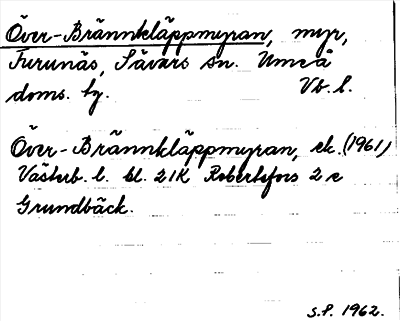 Över-Brännkläppmyran, myr,
Furunäs, Sävars sn. Umeå
doms. tg. Vb. l.
Över-Brännkläppmyran, ek. (1961)
Västerb. l. bl. 21K Robertsfors 2 c
Grundbäck.
S.P. 1962.